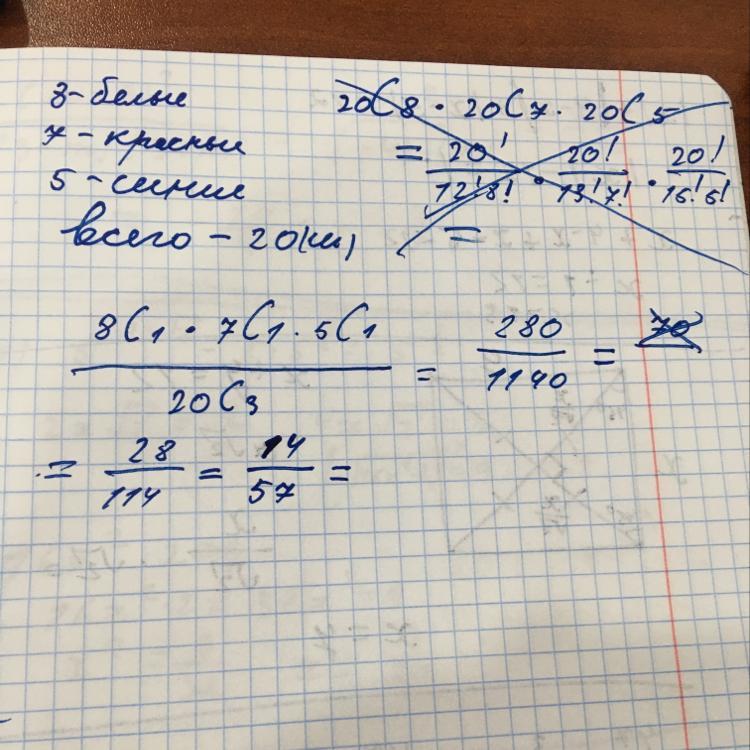 8-белые
7-красные
5-синие
Всего - 20(ш)
20C8 · 20C7 · 20C5
= 20!/12!8! · 20!/13!7! · 20!/16!6!
=
8C1 · 7C1 · 5C1 / 20C3 = 280/1140 = 70
= 28/114 = 14/57 =